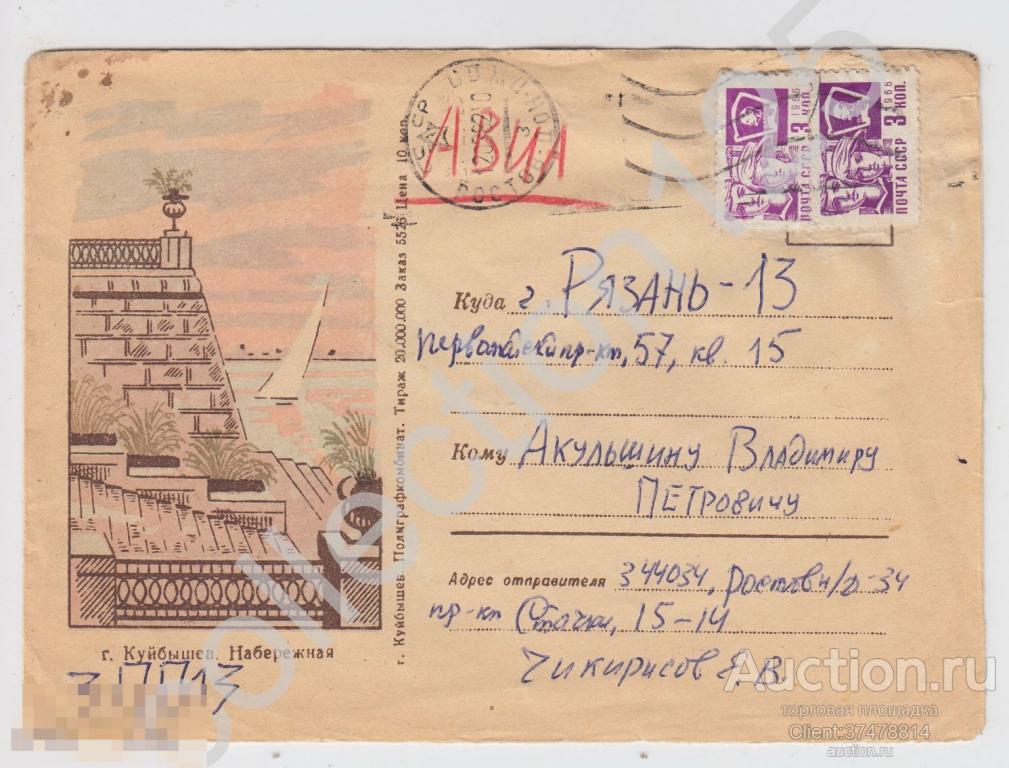 АВИА
1966 3 КОП.
ПОЧТА СССР
1966 3 КОП.
ПОЧТА СССР
Куда г. Рязань-13
Первомайский пр-кт, 57, кв. 15
Кому Акульшину Владимиру
Петровичу
Адрес отправителя 344034, Ростов н/Д-34
пр-кт Стачки, 15-14
Чикирисов В.
г. Куйбышев. Набережная
г. Куйбышев. Полиграфкомбинат. Тираж 20.000.000 Заказ 5526 Цена 10 коп.
Auction.ru
торговая площадка
Client:37478814
auction.ru